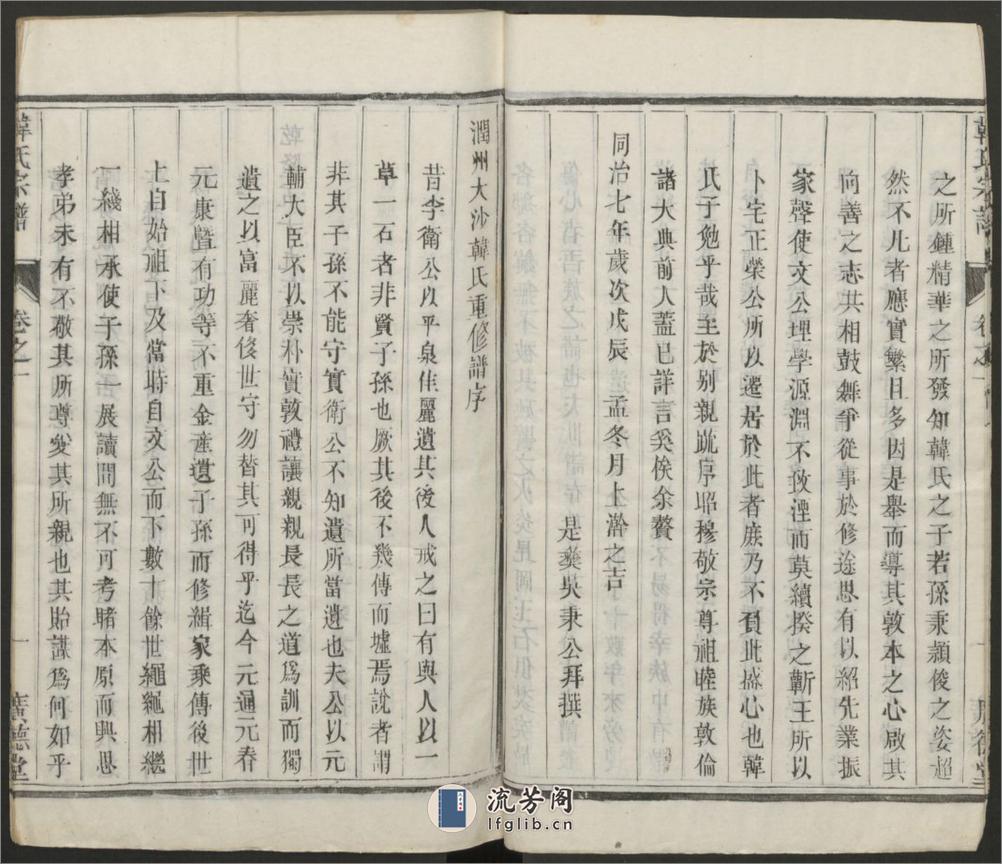 韓氏宗譜
之所鍾精華之所發知韓氏之子若孫秉穎俊之姿超
然不凡者應實繁且多因是舉而導其敦本之心啟其
向善之志共相鼓舞爭從事於修途思有以紹先業振
家聲使文公理學源淵不致湮而莫續揆之蘄王所以
卜宅正榮公所以遷居於此者庶乃不負此盛心也韓
氏子勉乎哉至於別親疏序昭穆敬宗尊祖睦族敦倫
諸大典前人蓋已詳言奚俟余贅
同治七年歲次戊辰孟冬月上澣之吉
是彝吳秉公拜撰
潤州大沙韓氏重修譜序
昔李衛公以平泉佳麗遺其後人戒之曰有與人以一
草一石者非賢子孫也厥其後不幾傳而墟焉說者謂
非其子孫不能守實衛公不知遺所當遺也夫公以元
輔大臣不以崇朴實敦禮讓親親長長之道為訓而獨
遺之以富麗奢侈世守勿替其可得乎迄今元通元春
元康暨有功等不重金產遺子孫而修緝家乘傳後世
上自始祖下及當時自文公而下數十餘世繩繩相繼
一綫相承使子孫一展讀間無不可考睹本原而興思
孝弟未有不敬其所尊愛其所親也其貽謀為何如乎
韓氏宗譜
卷之一
一
廣德堂
流芳阁
lfglib.cn